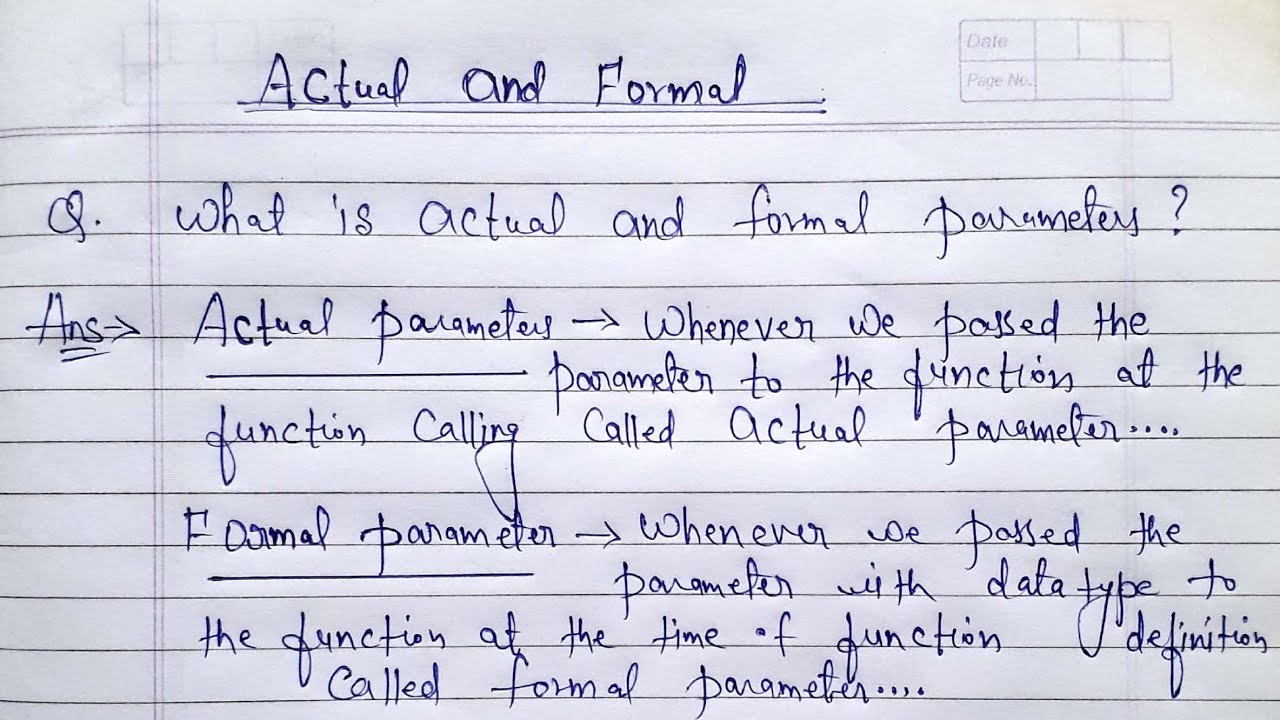 Date
Page No.
Actual and Formal
Q. What is actual and formal parameters?
Ans→ Actual parameters → Whenever we passed the
parameter to the function at the
function Calling Called Actual parameter....
Formal parameter → Whenever we passed the
parameter with data type to
the function at the time of function definition
Called formal parameter....